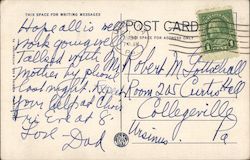 THIS SPACE FOR WRITING MESSAGES
POST CARD
THIS SPACE FOR ADDRESS ONLY
Hope all is well
work going well
Talked with
mother by phone
last night.
your
Fri Eve at 8.
Love - Dad
Robert M.
Room 205 Curtis Hall
Collegeville
Ursinus Pa
1 1